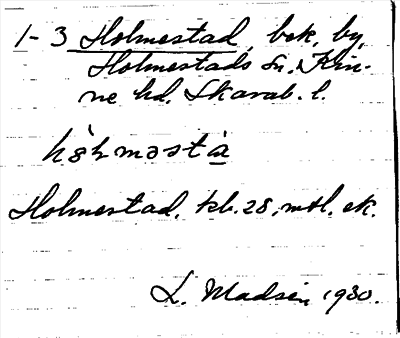 1-3 Holmestad, bek. by,
Holmestads sn. Kin-
ne hd. Skarab. l.
Holmestad. kb. 28, mtl. ek.
L. Madsén 1930.